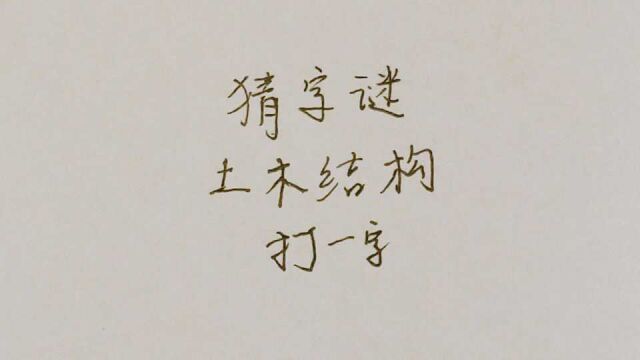 猜字谜
土木结构
打一字